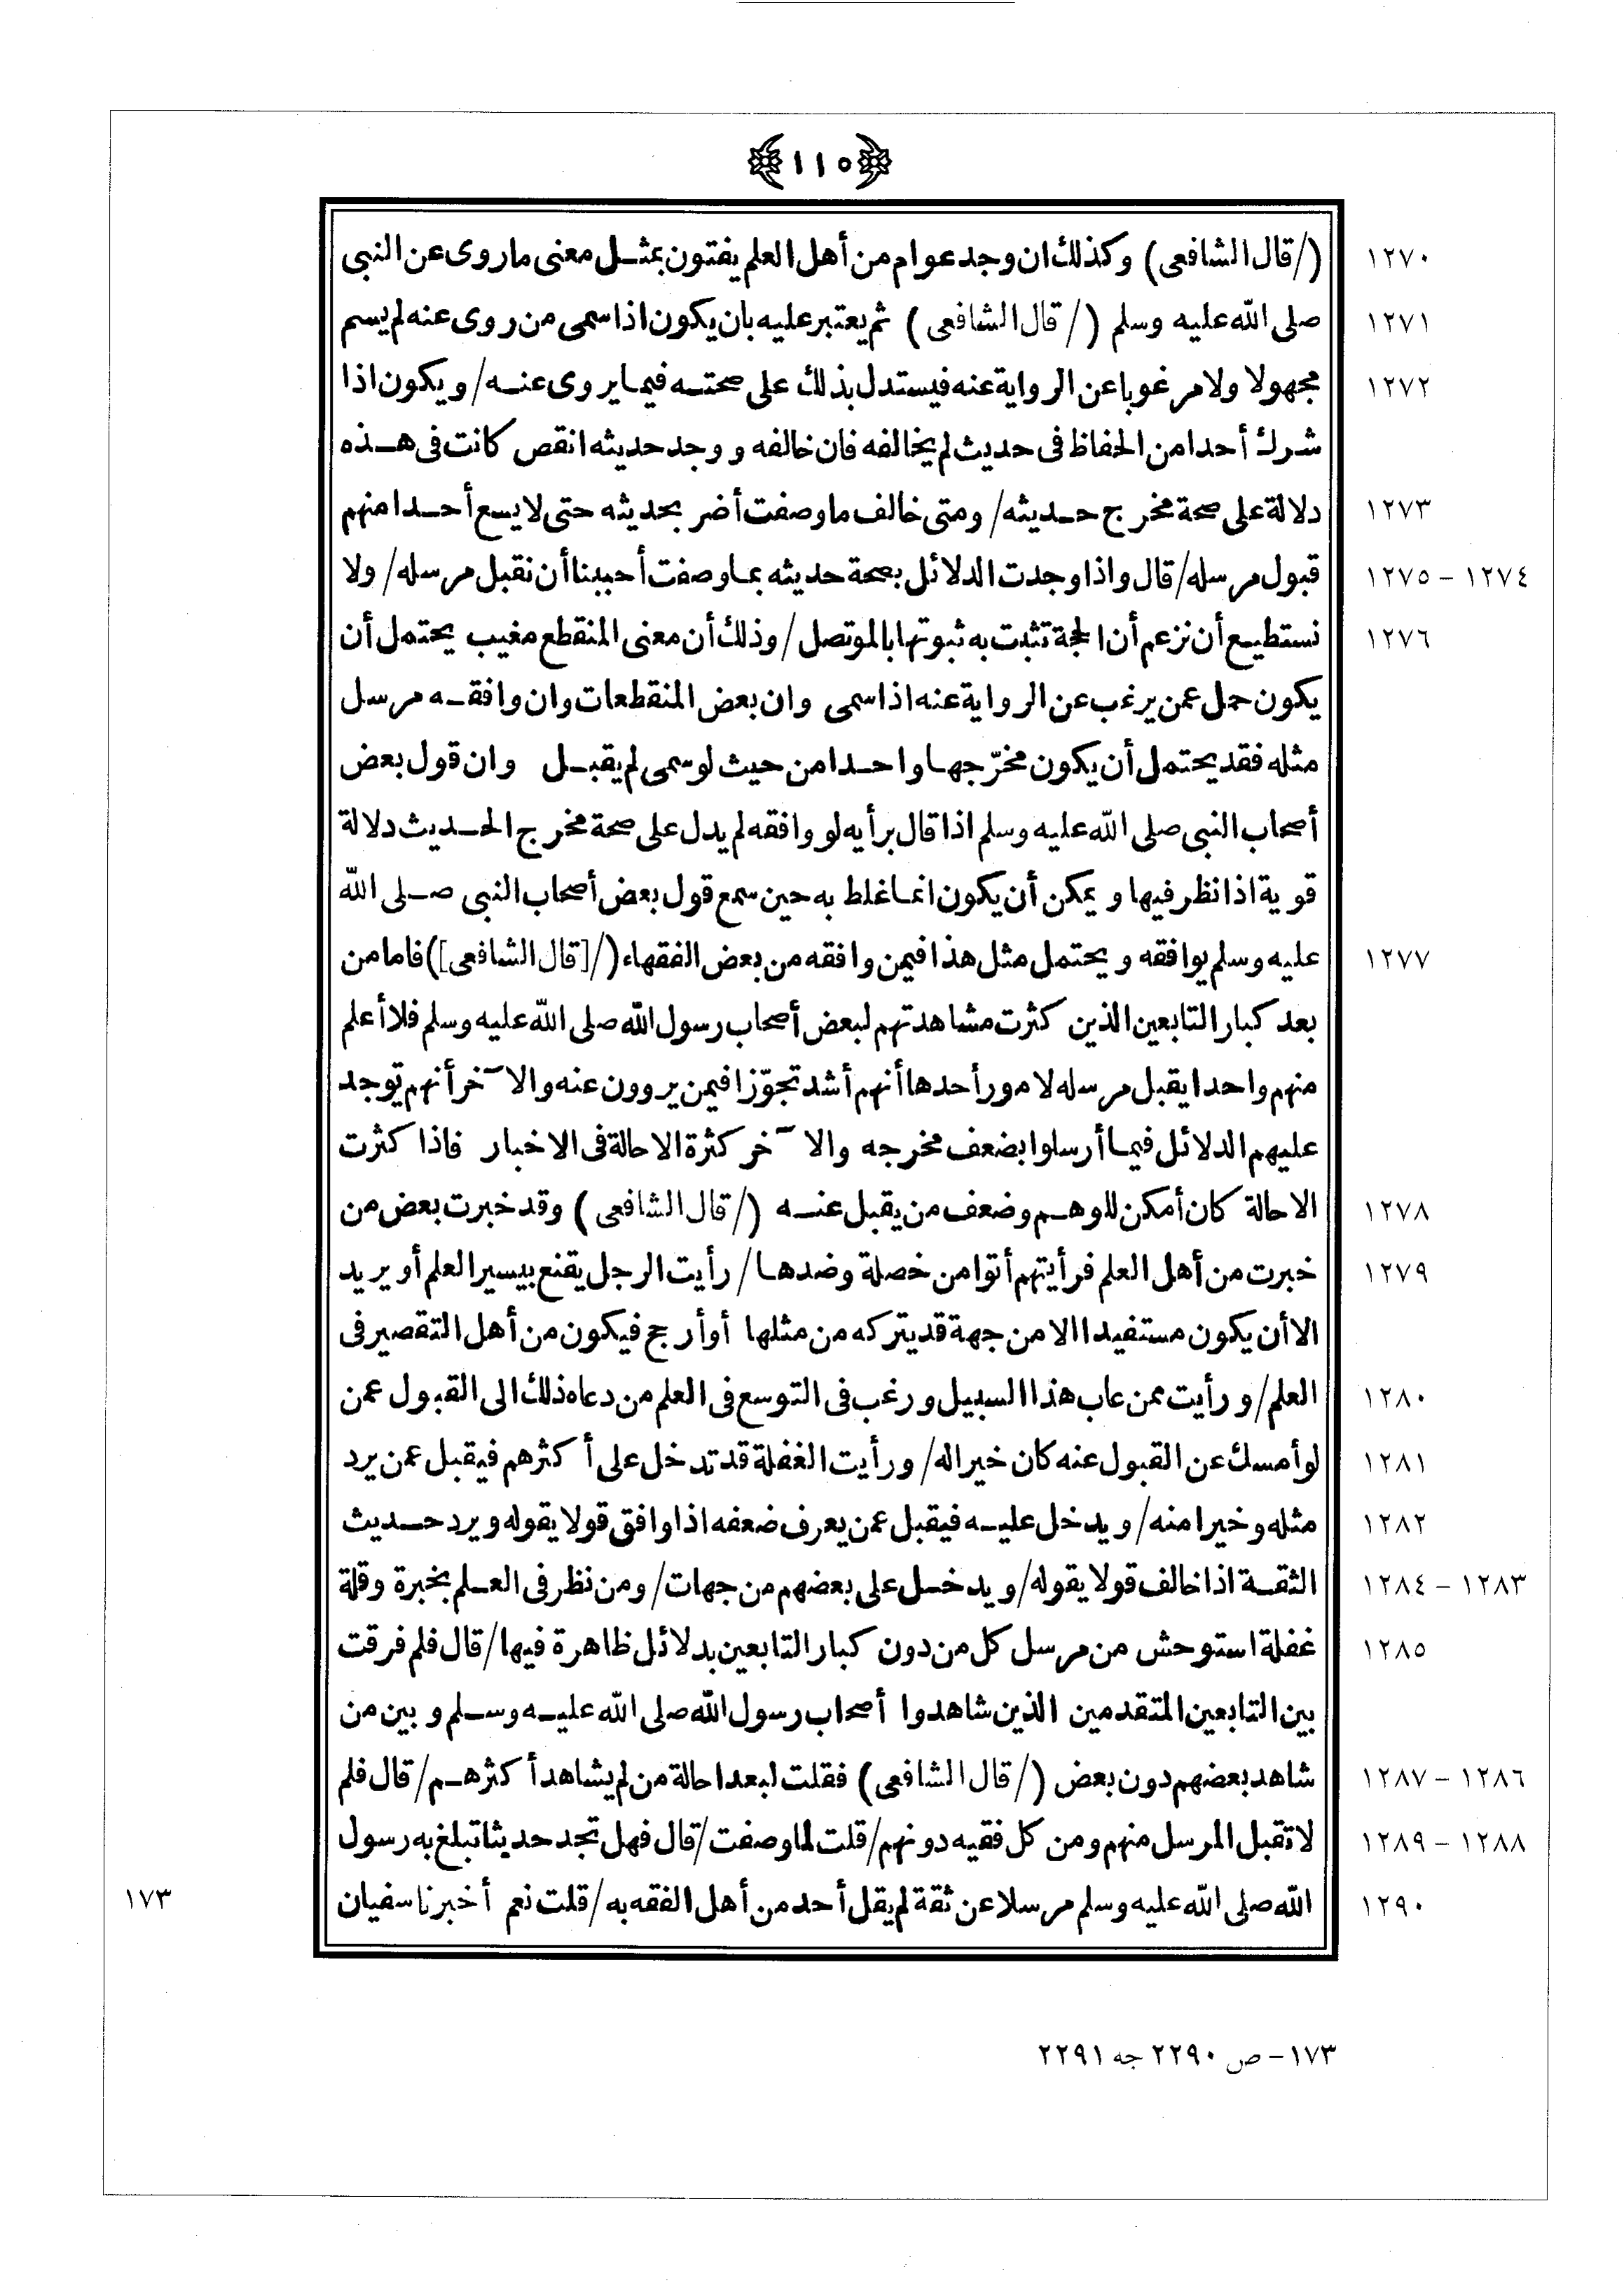 ﴿١١٥﴾
(/قال الشافعى) وكذلك ان وجد عوام من أهل العلم يفتون بمثل معنى ما روى عن النبى ١٢٧٠
صلى الله عليه وسلم (/ قال الشافعى) ثم يعتبر عليه بان يكون اذا سمى من روى عنه لم يسم ١٢٧١
مجهولا ولا مرغوبا عن الرواية عنه فيستدل بذلك على صحته فيما يروى عنه/ ويكون اذا ١٢٧٢
شرك أحدا من الحفاظ فى حديث لم يخالفه فان خالفه ووجد حديثه انقص كانت فى هذه
دلالة على صحة مخرج حديثه/ ومتى خالف ما وصفت أضر بحديثه حتى لا يسع أحدا منهم ١٢٧٣
قبول مرسله/ قال واذا وجدت الدلائل بصحة حديثه بما وصفت أحببنا أن نقبل مرسله/ ولا ١٢٧٤ - ١٢٧٥
نستطيع أن نزعم أن الحجة تثبت به ثبوتها بالموتصل/ وذلك أن معنى المنقطع مغيب يحتمل أن ١٢٧٦
يكون حمل عمن يرغب عن الرواية عنه اذا سمى وان بعض المنقطعات وان وافقه مرسل
مثله فقد يحتمل أن يكون مخرّجها واحدا من حيث لو سمى لم يقبل وان قول بعض
أصحاب النبى صلى الله عليه وسلم اذا قال برأيه لو وافقه لم يدل على صحة مخرج الحديث دلالة
قوية اذا نظر فيها ويمكن أن يكون انما غلط به حين سمع قول بعض أصحاب النبى صلى الله
عليه وسلم يوافقه ويحتمل مثل هذا فيمن وافقه من بعض الفقهاء (/[قال الشافعى]) فاما من ١٢٧٧
بعد كبار التابعين الذين كثرت مشاهدتهم لبعض أصحاب رسول الله صلى الله عليه وسلم فلا أعلم
منهم واحدا يقبل مرسله لامور أحدها أنهم أشد تجوّزا فيمن يروون عنه والآخر أنهم توجد
عليهم الدلائل فيما أرسلوا بضعف مخرجه والآخر كثرة الاحالة فى الاخبار فاذا كثرت
الاحالة كان أمكن للوهم وضعف من يقبل عنه (/ قال الشافعى) وقد خبرت بعض من ١٢٧٨
خبرت من أهل العلم فرأيتهم أتوا من خصلة وضدها/ رأيت الرجل يقنع بيسير العلم أو يريد ١٢٧٩
الا أن يكون مستفيدا الا من جهة قد يتركه من مثلها أو أرجح فيكون من أهل التقصير فى
العلم/ ورأيت ممن عاب هذا السبيل ورغب فى التوسع فى العلم من دعاه ذلك الى القبول عمن ١٢٨٠
لو أمسك عن القبول عنه كان خيرا له/ ورأيت الغفلة قد تدخل على أكثرهم فيقبل عمن يرد ١٢٨١
مثله وخيرا منه/ ويدخل عليه فيقبل عمن يعرف ضعفه اذا وافق قولا يقوله ويرد حديث ١٢٨٢
الثقة اذا خالف قولا يقوله/ ويدخل على بعضهم من جهات/ ومن نظر فى العلم بخبرة وقلة ١٢٨٣ - ١٢٨٤
غفلة استوحش من مرسل كل من دون كبار التابعين بدلائل ظاهرة فيها/ قال فلم فرقت ١٢٨٥
بين التابعين المتقدمين الذين شاهدوا أصحاب رسول الله صلى الله عليه وسلم وبين من
شاهد بعضهم دون بعض (/ قال الشافعى) فقلت لبعد احالة من لم يشاهد أكثرهم/ قال فلم ١٢٨٦ - ١٢٨٧
لا تقبل المرسل منهم ومن كل فقيه دونهم/ قلت لما وصفت/ قال فهل تجد حديثا تبلغ به رسول ١٢٨٨ - ١٢٨٩
الله صلى الله عليه وسلم مرسلا عن ثقة لم يقل أحد من أهل الفقه به/ قلت نعم أخبرنا سفيان ١٢٩٠ ١٧٣
١٧٣ - ص ٢٢٩٠ جه ٢٢٩١